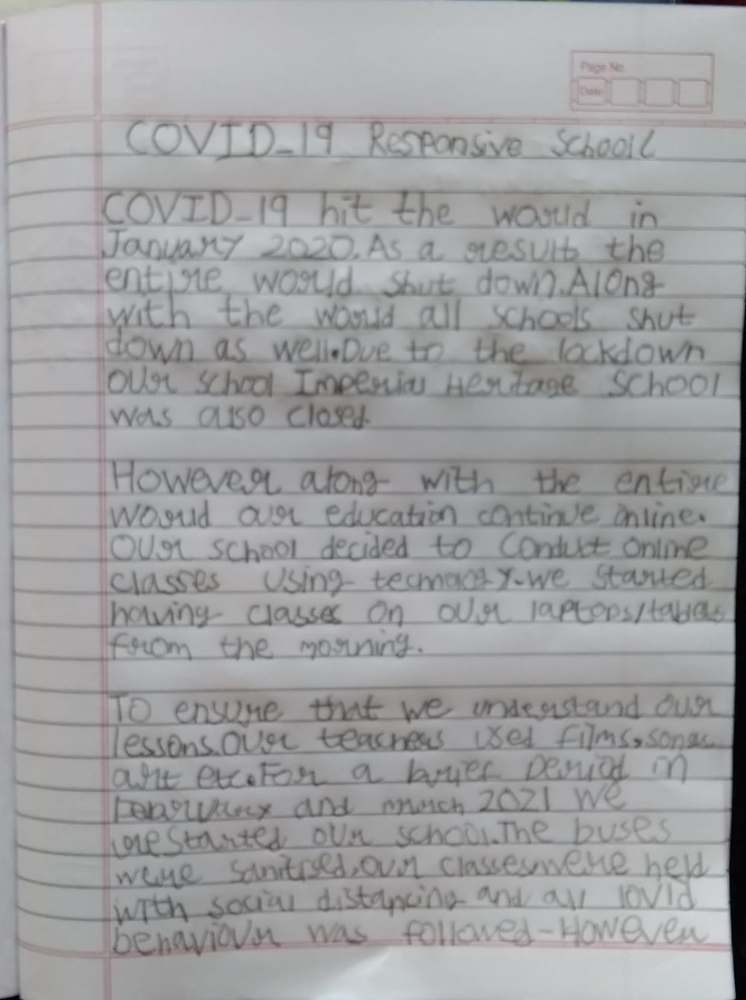 Page No.
Date
COVID-19 Responsive School
COVID-19 hit the world in
January 2020. As a result the
entire world shut down. Along
with the world all schools shut
down as well. Due to the lockdown
our school Imperial Heritage School
was also closed.
However along with the entire
world our education continue online.
Our school decided to conduct online
classes using we started
having classes on our laptops/tablets
from the morning.
To ensure that we understand our
lessons. Our teachers used films, songs
art etc. For a brief period in
and march 2021 we
restarted our school. The buses
were sanitised, our classes were held
with social distancing and all covid
behaviour was followed - However